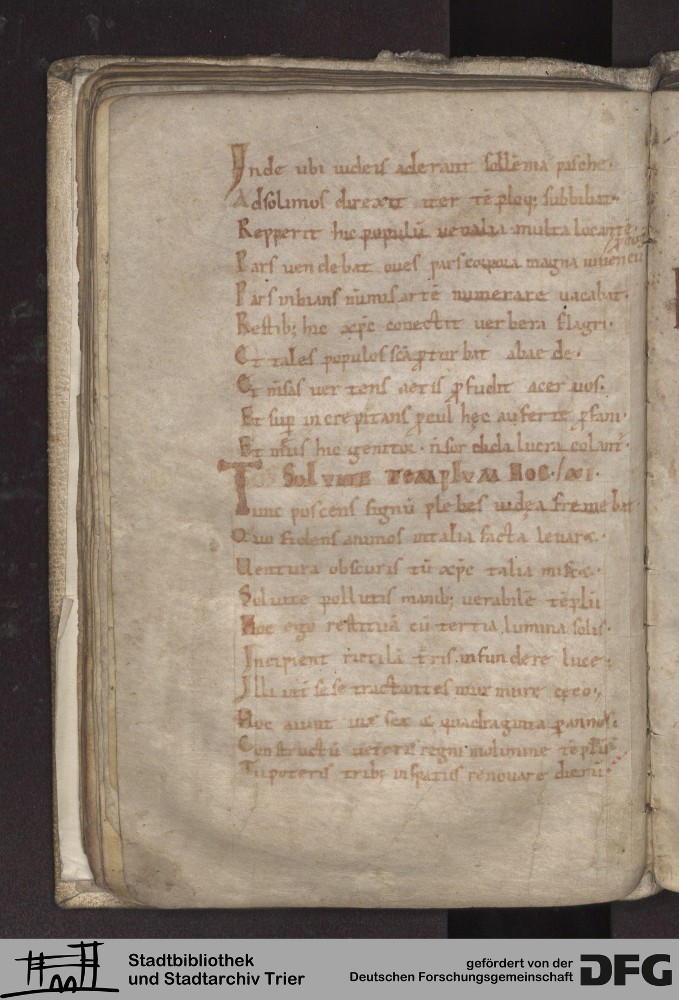 Inde ubi iudeis aderant sollēnia pasche·
Adsolimos direxit iter tēploq; subbibat·
Repperit hic populū uenalia multa locantē·
Pars uendebat oues pars corpora magna iuuencū
Pars inhians nūmis artē numerare uacabat·
Restib; hic xp̄c conectit uerbera flagri·
Et tales populos scā turbat abaede·
Et mſas uertens aeris ꝓfudit aceruos·
Et sup increpitans ꝓcul hęc auferte ꝓfani·
hic genitoris lucra colant̄·
Soluite templum hoc·
Tunc poscens signū plebes iudęa fremebat
Quo fidens animos intalia facta leuaræ·
Uentura obscuris tū xp̄c talia miscæ·
Soluite pollutis manib; uerabile tēplū
Hoc ego restituā cū tertia lumina solis·
Incipient rutilā tr̄is infundere lucē·
Illi int̄ sese tractantes murmure cęco·
Hoc aiunt uix sex & quadraginta ꝑannos·
Constructū ueteris regni molimine tēplū
Tu poteris trib; inspatiis renouare dierū·
Stadtbibliothek
und Stadtarchiv Trier
gefördert von der
Deutschen Forschungsgemeinschaft
DFG